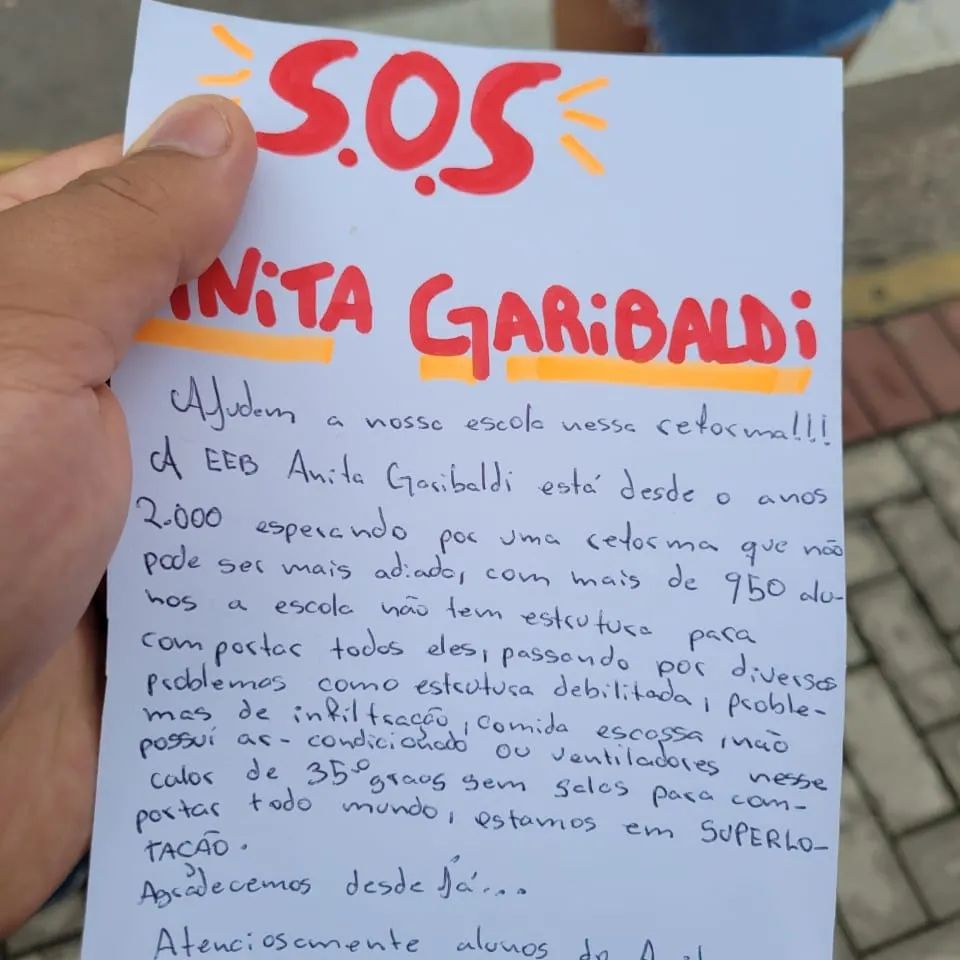 S.O.S
ANITA GARIBALDI
Ajudem a nossa escola nessa reforma!!!
A EEB Anita Garibaldi está desde o anos
2.000 esperando por uma reforma que não
pode ser mais adiada, com mais de 950 alu-
nos a escola não tem estrutura para
comportar todos eles, passando por diversos
problemas como estrutura debilitada, proble-
mas de infiltração, comida escassa, não
possui ar-condicionado ou ventiladores nesse
calor de 35º graos sem salas para com-
portar todo mundo, estamos em SUPERLO-
TACÃO.
Agradecemos desde já...
Atenciosamente alunos do